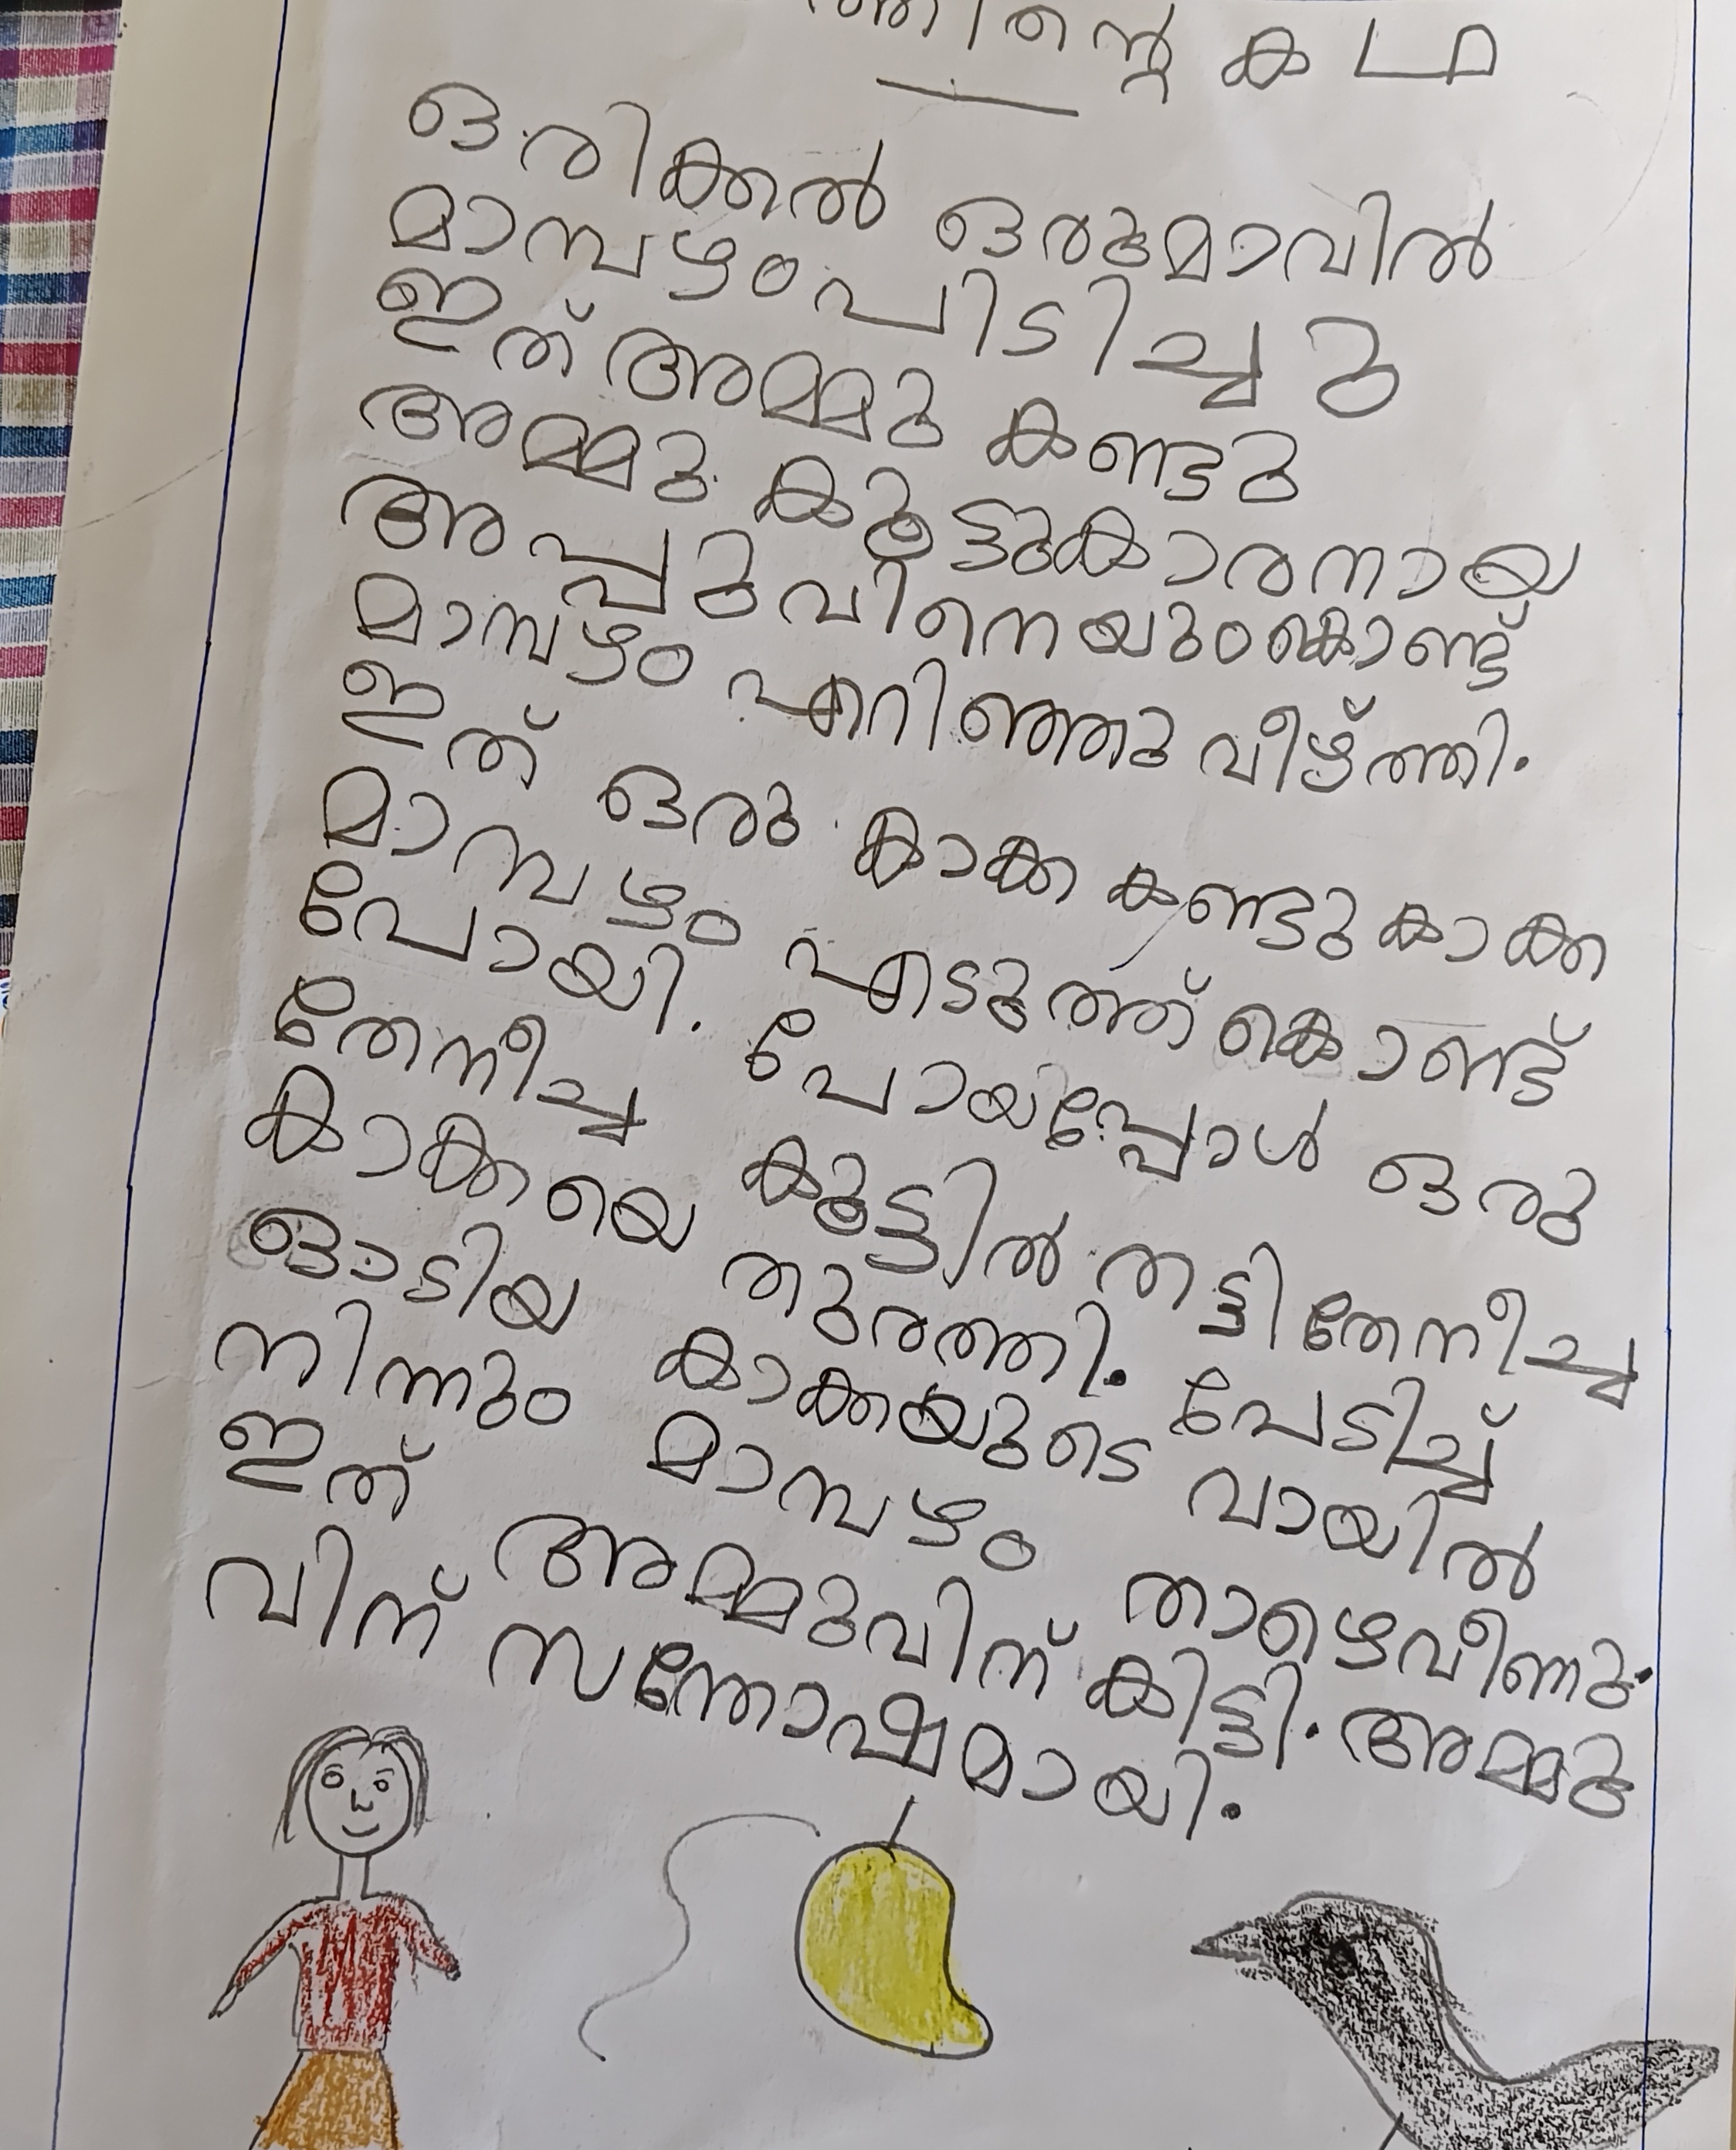 കഥ
ഒരിക്കൽ ഒരുമാവിൽ
മാമ്പഴം പിടിച്ചു
ഇത് അമ്മു കണ്ടു
അമ്മു കൂട്ടുകാരനായ
അപ്പുവിനെയുംകൊണ്ട്
മാമ്പഴം എറിഞ്ഞു വീഴ്ത്തി.
ഇത് ഒരു കാക്ക കണ്ടു കാക്ക
മാമ്പഴം എടുത്ത് കൊണ്ട്
പോയി. പോയപ്പോൾ ഒരു
തേനീച്ച കൂട്ടിൽ തട്ടി തേനീച്ച
കാക്കയെ തുരത്തി. പേടിച്ച്
ഓടിയ കാക്കയുടെ വായിൽ
നിന്നും മാമ്പഴം താഴെവീണു.
ഇത് അമ്മുവിന് കിട്ടി. അമ്മു
വിന് സന്തോഷമായി.